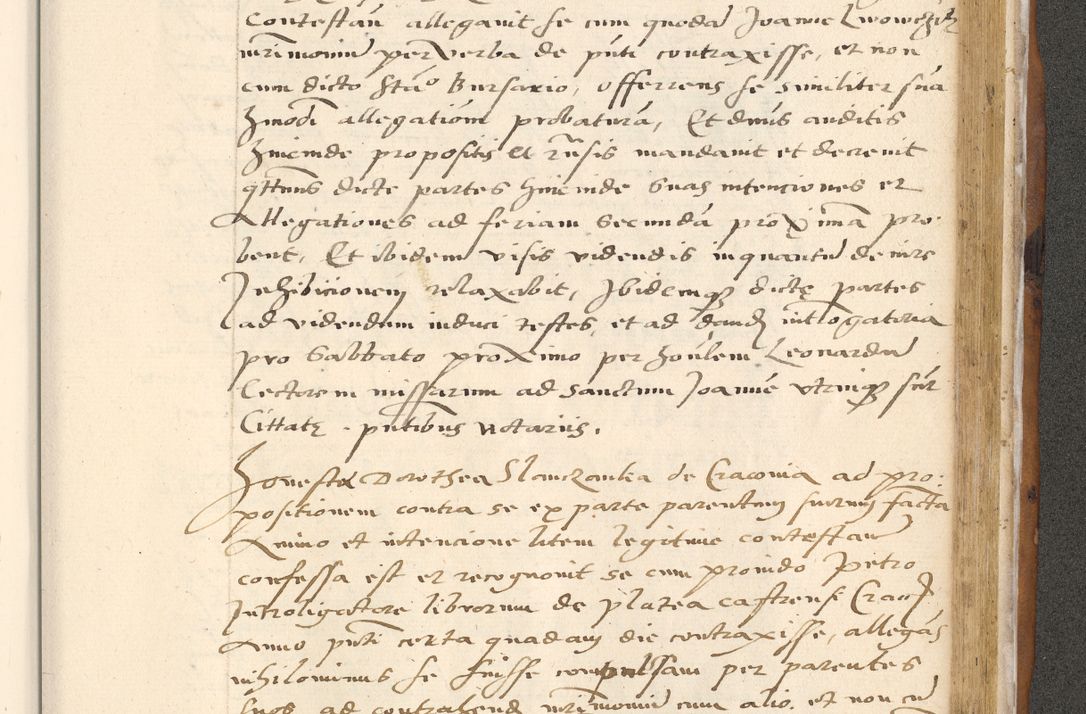 Contestan allegavit se cum quodā Joanne Lwowczik
mr̄imoniū per verba de pn̄ti contraxisse, et non
cum dicto Stāo Bursario, offerrens se similiter suā
hmōdi allegationem probaturā, Et dn̄us auditis
hincinde propositis et rn̄sis mandavit et decrevit
qtt̄nus dicte partes hincinde suas intenciones et
Allegationes ad feriam secundā proximā pro-
bent, Et ibidem visis videndis inquantū de iure
Inhibicionem relaxabit, Ibidemqȝ dictę partes
ad videndum induci testes, et ad dandū introgatoria
pro Sabbato proximo per ho͞nlem Leonardū
Lectorem missarum ad sanctum Joannē utrinqȝ sūt
Cittatę. pn̄tibus Notariis.
Honesta Dorothea Slanczanka de Cracovia ad pro-
positionem contra se ex parte parentum suorum facta
Animo et intencione litem legitime contestan
confessa est et recognovit se cum provido Petro
Introligatore librorum de platea castrensi Crac̄
Anno pn̄ti certa quadam die contraxisse, allegās
nihilominus se fuisse compulsam per parentes
suos ad contrahend mr̄imoniū cum alio. et non cū